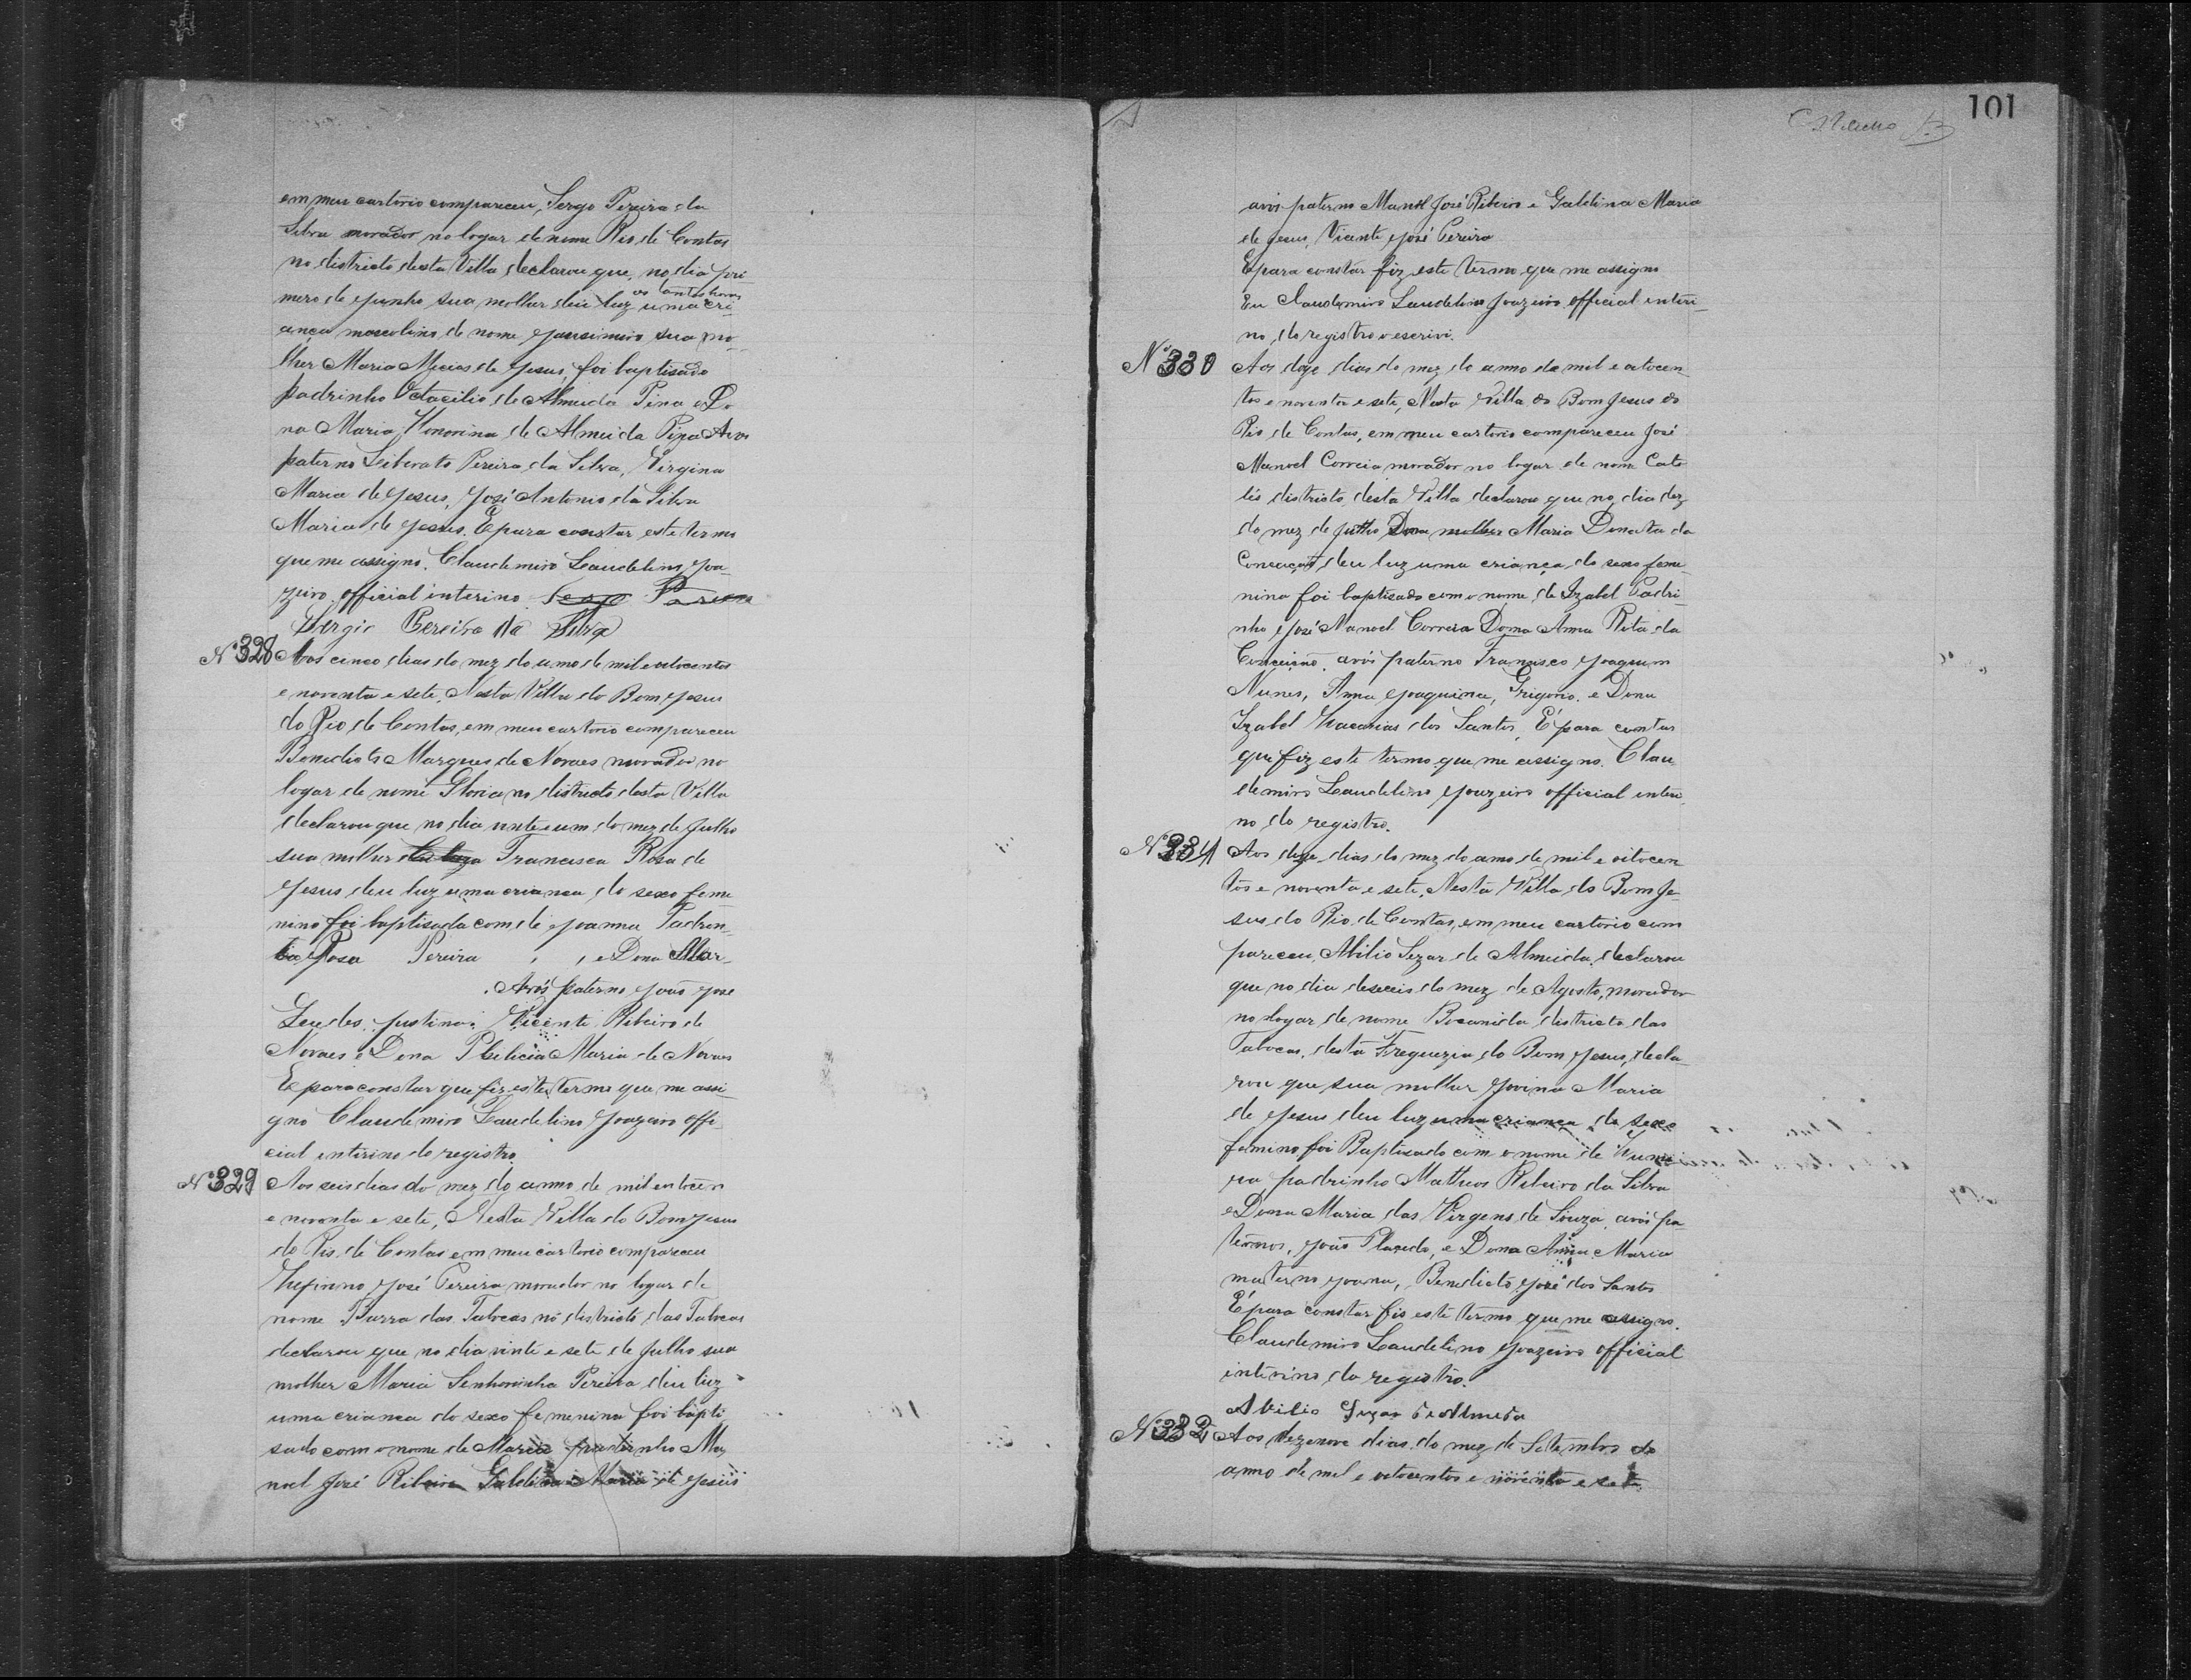 em meu cartorio compareceu, Sergo Pereira da
Silva morador no logar de nome Rio de Contas
no districto desta Villa declarou que, no dia pri
mero de Junho sua molher deu luz as tantas horas uma cri-
ança mascolino de nome Jausimiro sua mo-
lher Maria Mecias de Jesus, foi baptisado
padrinho Octacilio de Almeida Pina e Do
na Maria Honorina de Almeida Pina Avos
paterno Leiberato Pereira da Silva, Virgina
Maria de Jesus, José Antonio da Silva
Maria de Jesus. E para constar este termo
que me assigno. Claudemiro Laudelino Joa-
zeiro official interino
Sergio Pereira da Silva
Nº 328 Aos cinco dias do mez do anno de mil e oitocentos
e noventa e sete, Nesta Villa do Bom Jesus
do Rio de Contas, em meu cartorio compareceu
Benedicto Marques de Novaes morador no
logar de nome Gloria no districto desta Villa
declarou que no dia vinte e um do mez de Julho
sua molher Francisca Rosa de
Jesus deu luz uma crianca do sexo feme
nino foi baptisada com de Joanna Padren
Rosa Pereira , , e Dona Mar-
. Avós paterno João Jose
Justina. Vicente Ribeiro de
Novaes e Dona Maria de Novaes
E para constar que fiz este termo que me assi-
gno Claudemiro Laudelino Joazeiro offi-
cial interino do registro.
Nº 329 Aos seis dias do mez do anno de mil e
e noventa e sete, Nesta Villa do Bom Jesus
do Rio de Contas em meu cartorio compareceu
José Pereira morador no logar de
nome Barra das Tabocas no districto das Tabocas
declarou que no dia vinte e sete de Julho sua
molher Maria Senhorinha Pereira deu luz
uma crianca do sexo femenina foi bapti
sado com o nome de Maria padrinho Ma
noel José Ribeiro Galdina Maria de Jesus
101
avós paterno Manoel José Ribeiro e Galdina Maria
de Jesus, Vicente José Pereira
E para constar fiz este termo que me assigno
Eu Claudemiro Laudelino Joazeiro official interi-
no do registro o escrivi.
Nº 330 Aos doze dias do mez do anno de mil e oitocen-
tos e noventa e sete, Nesta Villa do Bom Jesus do
Rio de Contas, em meu cartorio compareceu José
Manoel Correia morador no logar de nome Cato
lés districto desta Villa declarou que no dia dez
do mez de Julho Dona molher Maria Donata da
Conceição deu luz uma criança do sexo feme-
nina foi baptisado com o nome de Izabel Padri-
nho José Manoel Correia Dona Anna Rita da
Conceição. avós paterno Francisco Joaquim
Nunes, Anna Joaquina, Grigorio. e Dona
Izabel dos Santos, E para contar
que fiz este termo que me assigno. Clau
demiro Laudelino Joazeiro official interi
no do registro.
Nº 331 Aos doze dias do mez do anno de mil e oitocen
tos e noventa e sete, Nesta Villa do Bom Je-
sus do Rio de Contas, em meu cartorio com
pareceu, Abilio Sezar de Almeida, declarou
que no dia deseceis do mez de Agosto, morador
no logar de nome districto das
Tabocas, desta Freguezia do Bom Jesus, decla
rou que sua molher Jovina Maria
de Jesus deu luz uma crianca do sexo
femino foi Baptisado com o nome de
padrinho Matheos Ribeiro da Silva
e Dona Maria das Virgens de Souza, avós pa
ternos, João e Dona Anna Maria
materno Joana, Benedicto José dos Santos
E para constar fis este termo que me assigno.
Claudemiro Laudelino Joazeiro official
interino do registro.
Abilio Sezar de Almeida
Nº 332 Aos dezenove dias do mez de Setembro do
anno de mil e oitocentos e noventa e sete